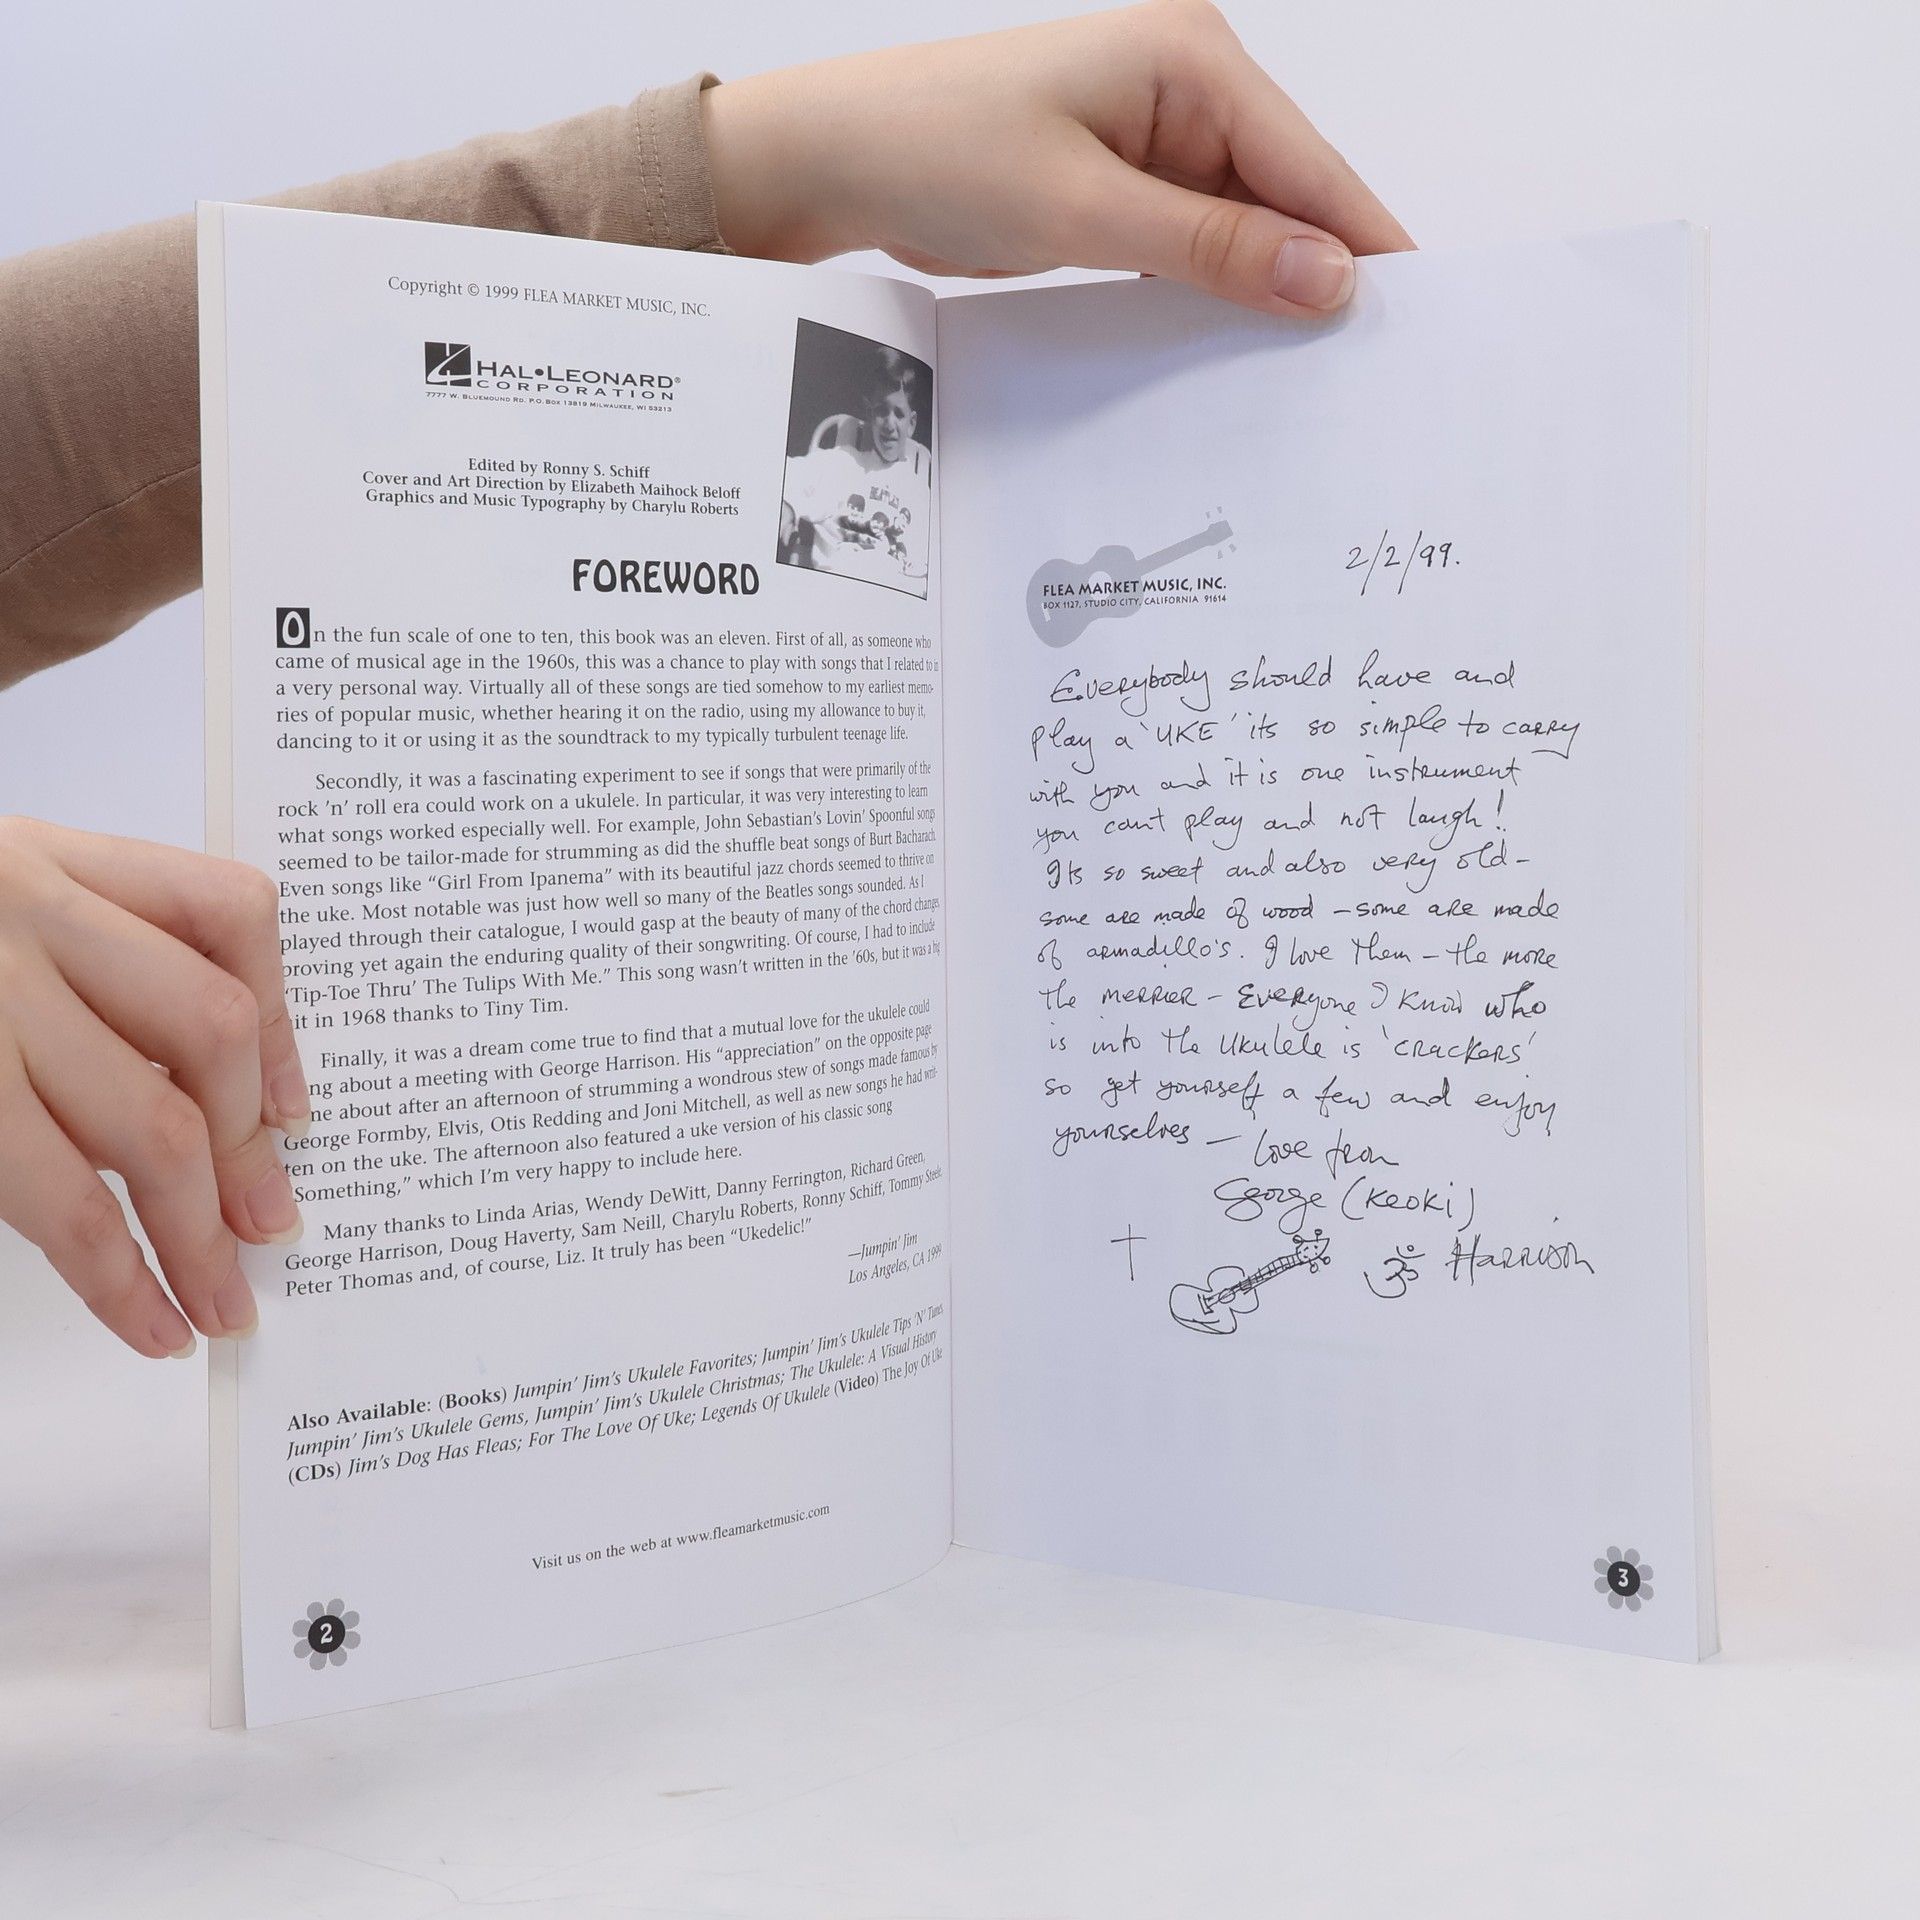 Copyright © 1999 FLEA MARKET MUSIC, INC.
HAL•LEONARD®
CORPORATION
7777 W. BLUEMOUND RD. P.O. BOX 13819 MILWAUKEE, WI 53213
Edited by Ronny S. Schiff
Cover and Art Direction by Elizabeth Maihock Beloff
Graphics and Music Typography by Charylu Roberts
FOREWORD
On the fun scale of one to ten, this book was an eleven. First of all, as someone who
came of musical age in the 1960s, this was a chance to play with songs that I related to in
a very personal way. Virtually all of these songs are tied somehow to my earliest memo-
ries of popular music, whether hearing it on the radio, using my allowance to buy it,
dancing to it or using it as the soundtrack to my typically turbulent teenage life.
Secondly, it was a fascinating experiment to see if songs that were primarily of the
rock 'n' roll era could work on a ukulele. In particular, it was very interesting to learn
what songs worked especially well. For example, John Sebastian's Lovin' Spoonful songs
seemed to be tailor-made for strumming as did the shuffle beat songs of Burt Bacharach.
Even songs like “Girl From Ipanema” with its beautiful jazz chords seemed to thrive on
the uke. Most notable was just how well so many of the Beatles songs sounded. As I
played through their catalogue, I would gasp at the beauty of many of the chord changes,
proving yet again the enduring quality of their songwriting. Of course, I had to include
“Tip-Toe Thru' The Tulips With Me.” This song wasn't written in the '60s, but it was a big
it in 1968 thanks to Tiny Tim.
Finally, it was a dream come true to find that a mutual love for the ukulele could
ng about a meeting with George Harrison. His “appreciation” on the opposite page
ne about after an afternoon of strumming a wondrous stew of songs made famous by
George Formby, Elvis, Otis Redding and Joni Mitchell, as well as new songs he had writ-
ten on the uke. The afternoon also featured a uke version of his classic song
“Something,” which I'm very happy to include here.
Many thanks to Linda Arias, Wendy DeWitt, Danny Ferrington, Richard Green,
George Harrison, Doug Haverty, Sam Neill, Charylu Roberts, Ronny Schiff, Tommy Steele,
Peter Thomas and, of course, Liz. It truly has been “Ukedelic!”
—Jumpin' Jim
Los Angeles, CA 1999
Also Available: (Books) Jumpin' Jim's Ukulele Favorites; Jumpin' Jim's Ukulele Tips 'N' Tunes,
Jumpin' Jim's Ukulele Gems, Jumpin' Jim's Ukulele Christmas; The Ukulele: A Visual History
(CDs) Jim's Dog Has Fleas; For The Love Of Uke; Legends Of Ukulele (Video) The Joy Of Uke
Visit us on the web at www.fleamarketmusic.com
2
FLEA MARKET MUSIC, INC.
BOX 1127, STUDIO CITY, CALIFORNIA 91614
2/2/99.
Everybody should have and
play a 'UKE' its so simple to carry
with you and it is one instrument
you cant play and not laugh!
Its so sweet and also very old -
some are made of wood - some are made
of armadillo's. I love them - the more
the merrier - Everyone I know who
is into the Ukulele is 'crackers'
so get yourself a few and enjoy
yourselves -
love from
George (Keoki)
ॐ Harrison
3